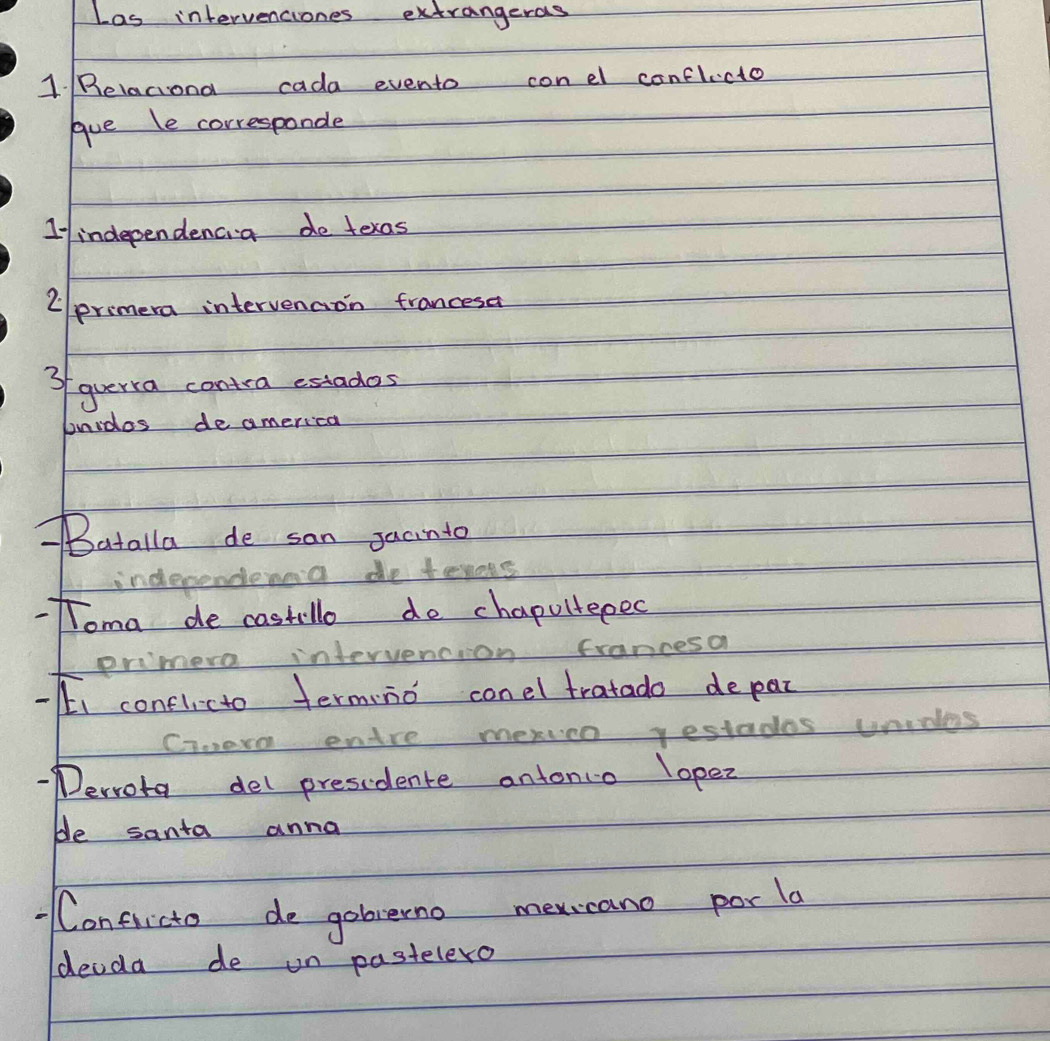 Las intervenciones extrangeras
1. Relaciona cada evento con el conflicto
que le corresponde
1- independencia de texas
2. primera intervención francesa
3- guerra contra estados
unidos de america
- Batalla de san jacinto
independencia de texas
- Toma de castillo de chapultepec
primera intervencion francesa
- El conflicto terminó con el tratado de paz
Guera entre mexico y estados unidos
- Derrota del presidente antonio lopez
de santa anna
- Conflicto de gobierno mexicano por la
deuda de un pastelero